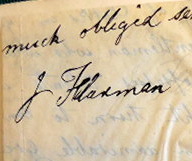 much obliged
J Flaxman